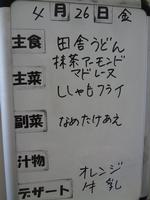 4月26日金
主食 田舎うどん
抹茶アーモンド
マドレーヌ
主菜 ししゃもフライ
副菜 なめたけあえ
汁物
オレンジ
デザート 牛乳